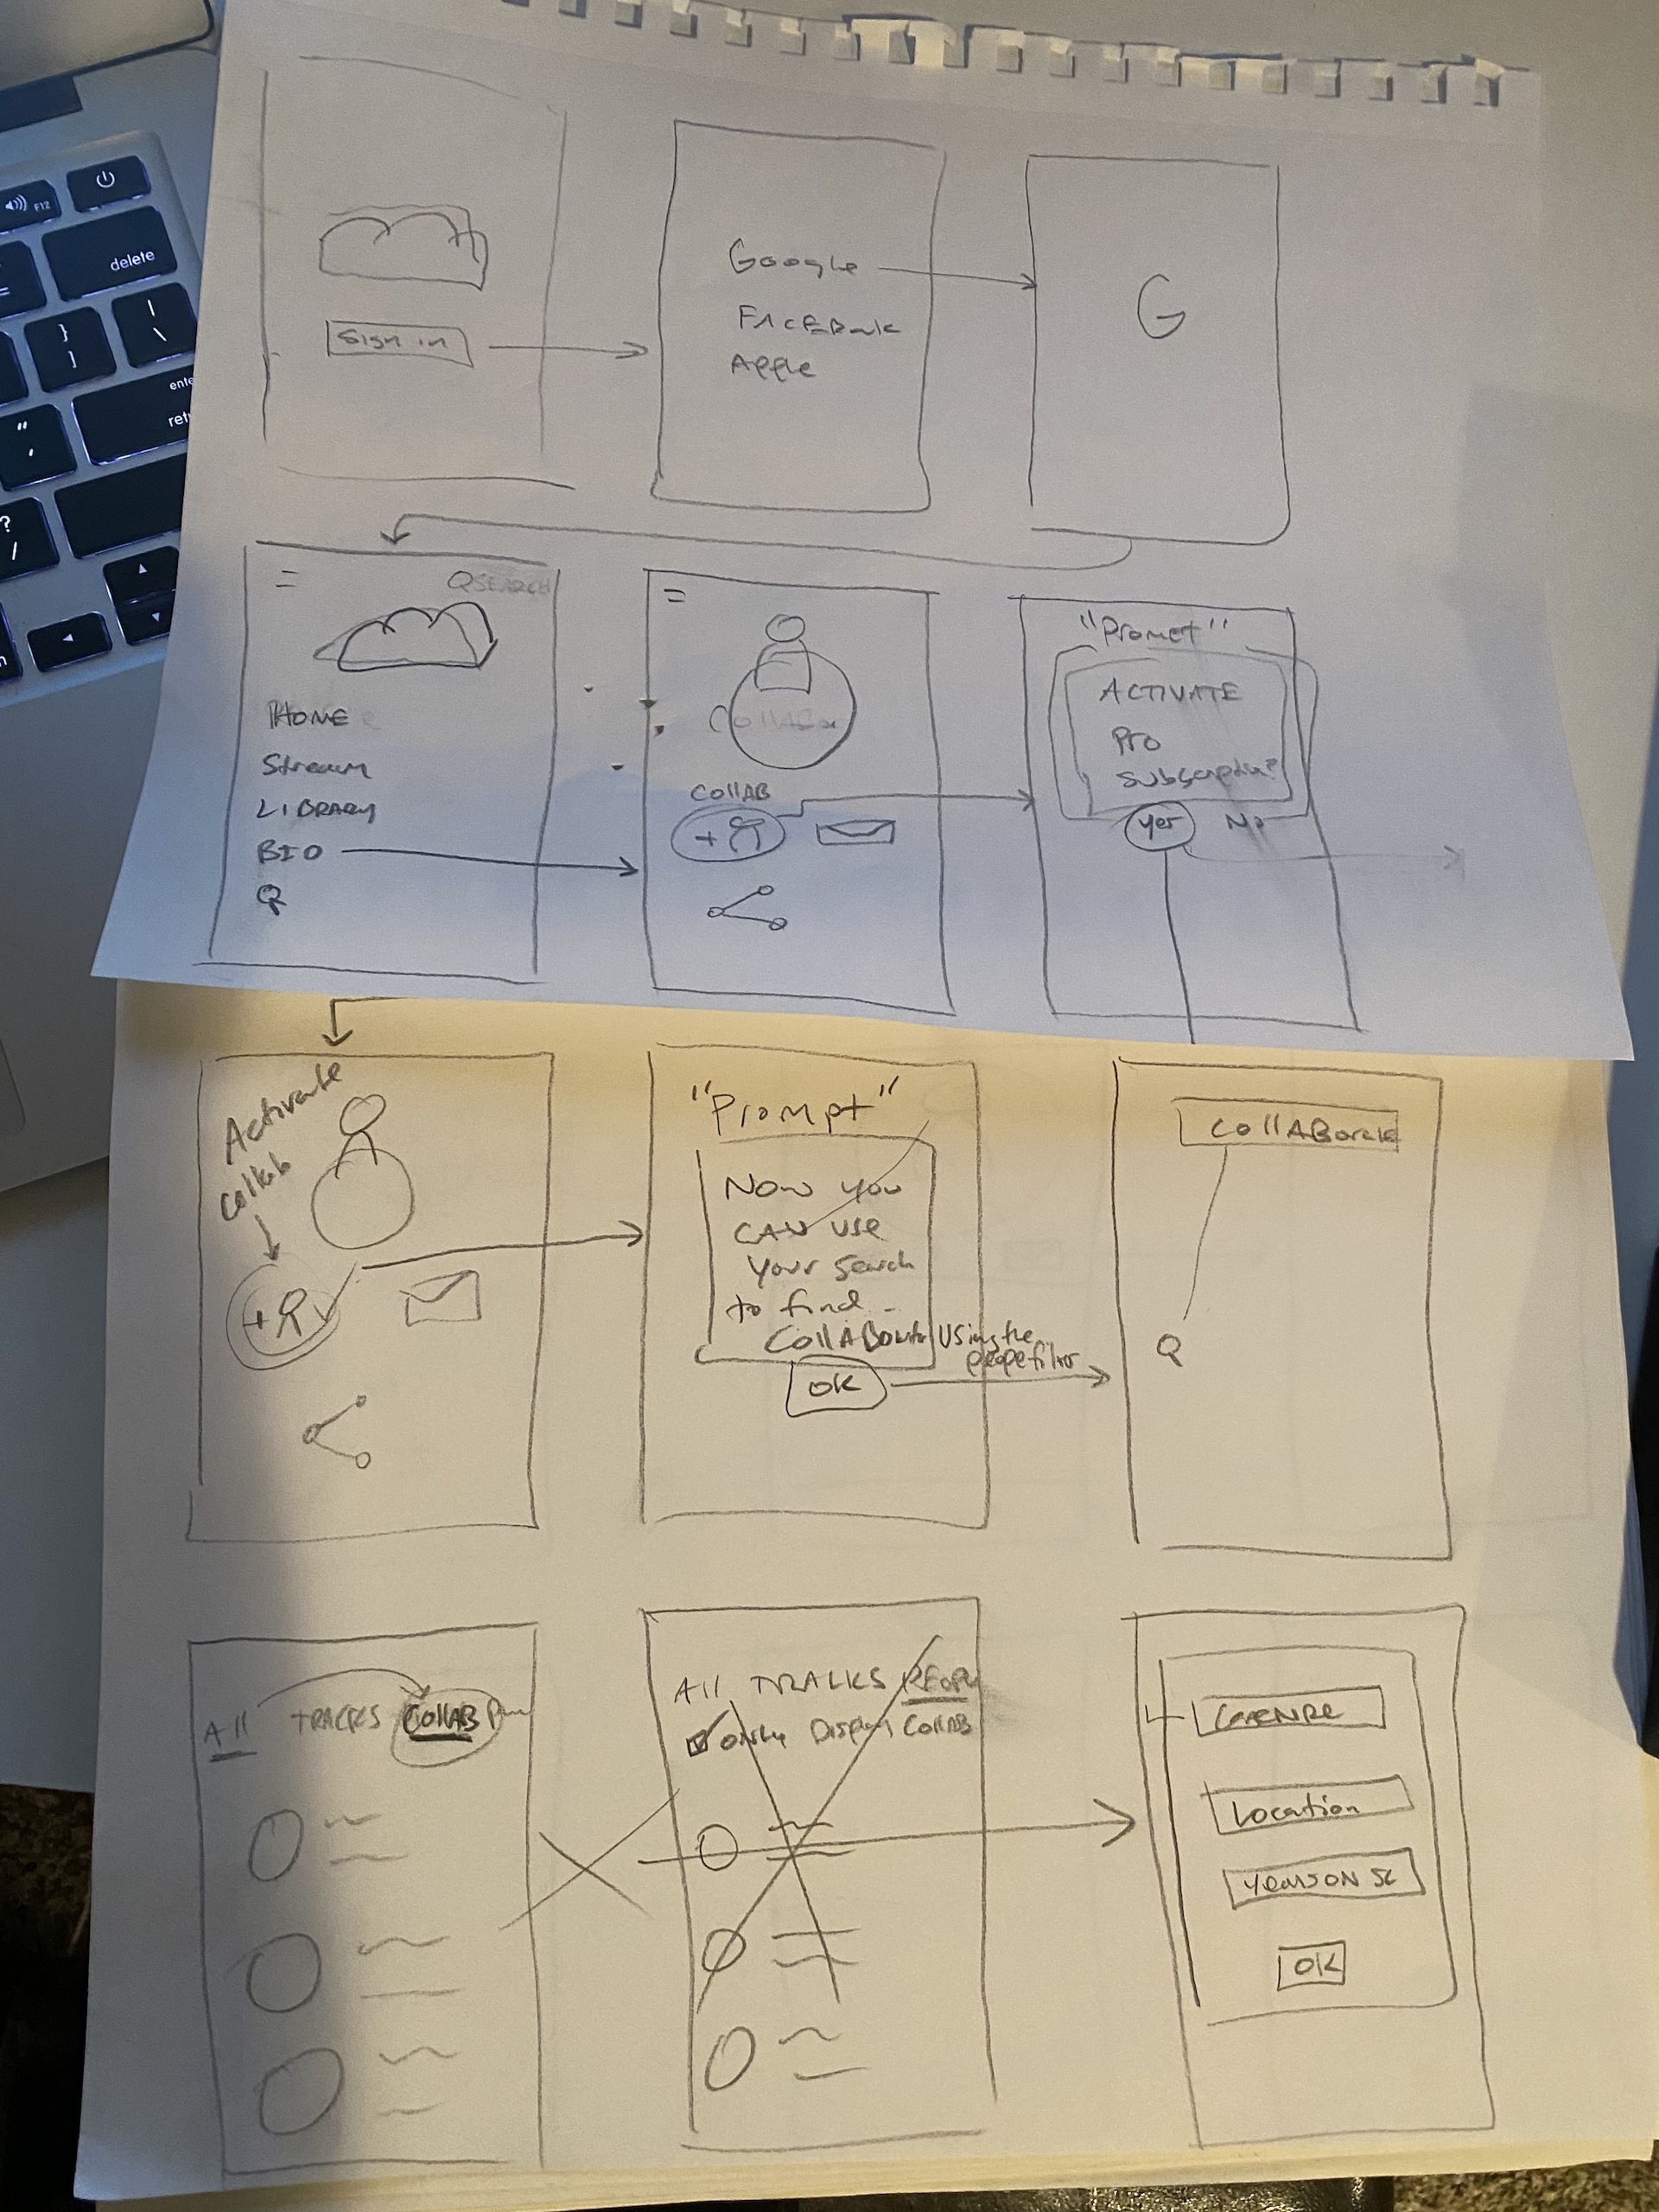 Sign in
Google
FACEBook
Apple
G
Q SEARCH
HOME
Stream
LIBRARY
BIO
Q
COllAB
+
"Prompt"
ACTIVATE
Pro
Subscription?
Yes No
Activate
Collab
+
"Prompt"
Now you
CAN use
your search
to find
CollABorator using the
people filter
OK
CollABorate
Q
All TRACKS COllAB
All TRACKS PEOPL
only Display Collab
GENRE
Location
Years ON SC
OK
F12
delete
}
]
|
\
enter
"
'
?
/